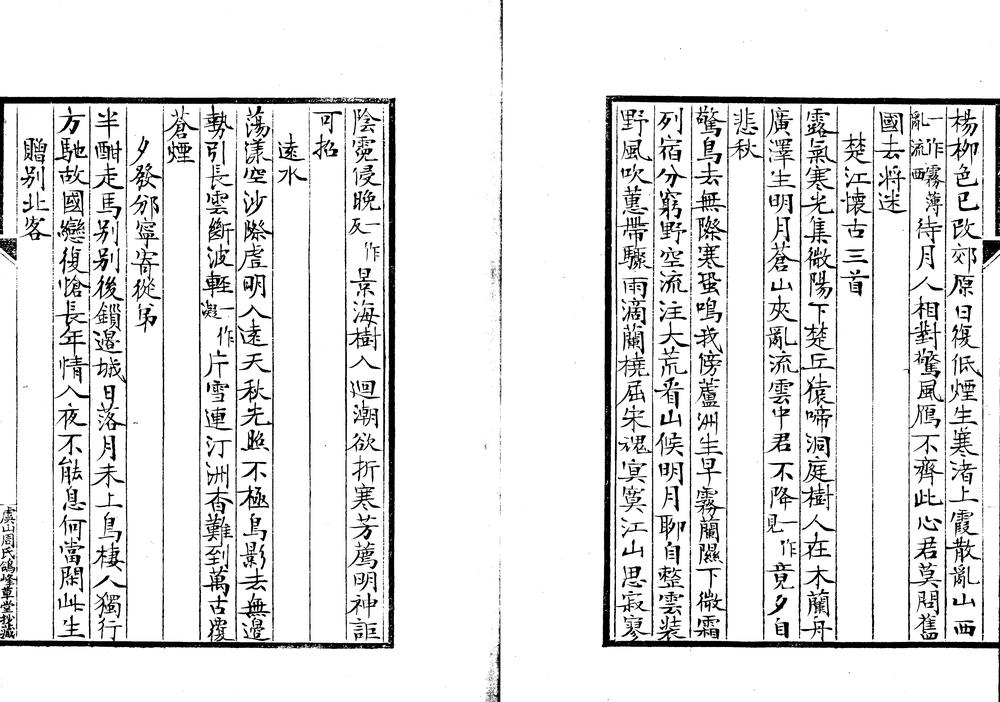 楊柳色已改郊原日復低煙生寒渚上霞散亂山西
一作霧薄亂流西待月人相對驚風鴈不齊此心君莫問舊
國去將迷
楚江懷古三首
露氣寒光集微陽下楚丘猿啼洞庭樹人在木蘭舟
廣澤生明月蒼山夾亂流雲中君不降一作見竟夕自
悲秋
驚鳥去無際寒蛩鳴我傍蘆洲生早霧蘭隰下微霜
列宿分窮野空流注大荒看山候明月聊自整雲装
野風吹蕙帶驟雨滴蘭橈屈宋魂冥寞江山思寂寥
陰霓侵晚一作反景海樹入迴潮欲折寒芳薦明神詎
可招
遠水
蕩漾空沙際虛明入遠天秋光照不極鳥影去無邊
勢引長雲斷波輕一作片雪連汀洲杳難到萬古覆
蒼煙
夕發邠寧寄從弟
半酣走馬别别後鎖邉城日落月未上鳥棲人獨行
方馳故國戀復愴長年情入夜不能息何當閑此生
贈别北客
虞山周氏鴿峰草堂抄藏